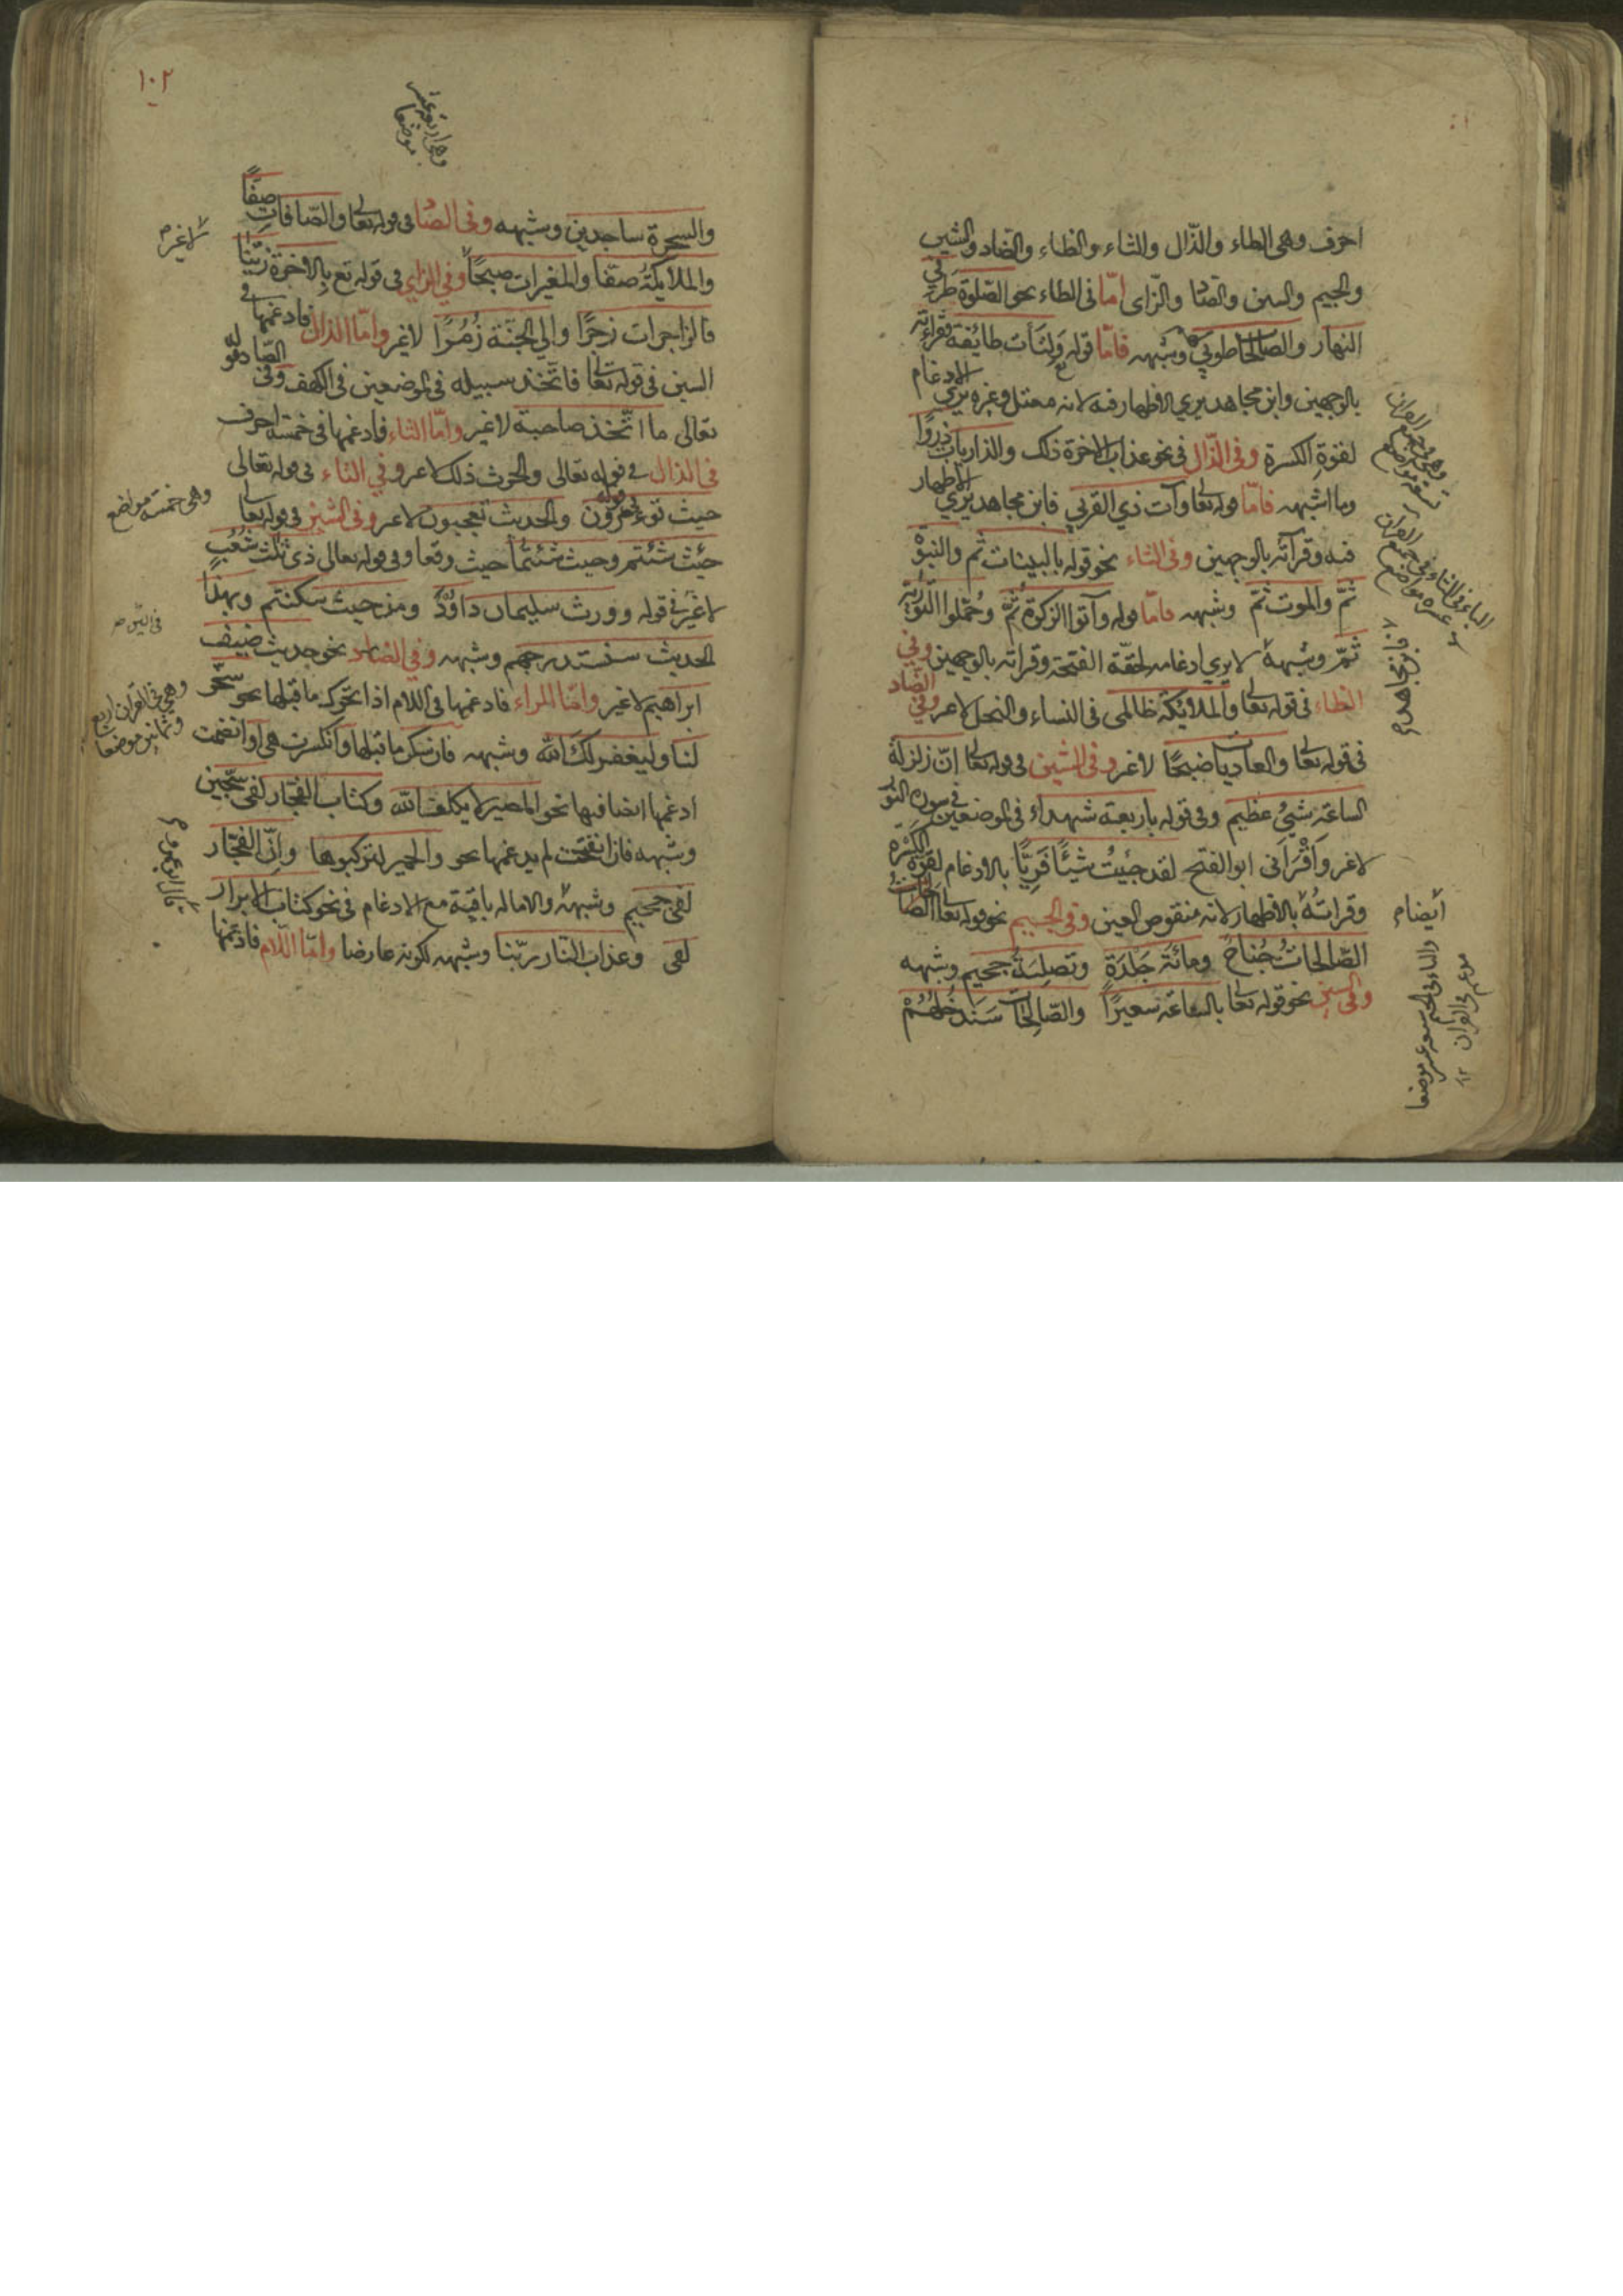 احرف وهى الطاء والذّال والثاء والظاء والضاد والشين
والجيم والسين والصاد والزاى امّا فى الطاء نحو الصّلوة طرفي
النهار والصالحات طوبي وشبهه فامّا قوله ولتأت طائفة فقراته
بالوجهين وابن مجاهد يري الاظهار فيه لانه معتل وغيره يري الادغام
لقوة الكسرة وفى الذّال فى نحو عذاب الاخرة ذلك والذاريات ذروا
وما اشبهه فامّا قوله تعا وآت ذي القربي فابن مجاهد يري الاظهار
فيه وقرأته بالوجهين وفى الثاء نحو قوله بالبينات ثم والنبوّة
ثمّ والموت ثمّ وشبهه فامّا قوله وآتوا الزكوة ثمّ وحمّلوا التورية
ثمّ وشبهه لا يري ادغامه لخفّة الفتحة وقراته بالوجهين وفي
الظاء فى قوله تعا والملائكة ظالمى فى النساء والنحل لاغير وفي الضاد
فى قوله تعا والعاديات ضبحًا لاغير وفى الشين فى قوله تعا انّ زلزلة
الساعة شيئ عظيم وفى قوله باربعة شهداء فى الموضعين فى سورة النور
لاغير واقراني ابو الفتح لقد جئيت شيئًا فريًّا بالادغام لقوّة الكسرة
وقراته بالاظهار لانه منقوص العين وفى الجيم نحو قوله تعا الصالحات
الصّالحات جناح ومائة جلدة وتصلية جحيم وشبهه
وفى السين نحو قوله تعا بالساعة سعيرًا والصّالحات سندخلهم
وهى فى جميع القران
الثاء فى جميع القران
فابن مجاهد م
أيضا م
موضع فى القران ١٢
١٠٢
وهى اربعة عشر
موضعا
والسحرة ساجدين وشبهه وفى الصاد فى قوله تعا والصّافات صفًّا
والملائكة صفّا والمغيرات صبحًا وفي الزاي فى قوله تع بالاخرة زيّنّا
فالزاجرات زجرًا والي الجنّة زمرًا لاغير وامّا الذال فادغمها فى
السين فى قوله تعا فاتّخذ سبيله فى الموضعين فى الكهف وفى الصاد قوله
تعالى ما اتّخذ صاحبة لاغير وامّا الثاء فادغمها فى خمسة احرف
فى الذال فى قوله تعالى والحرث ذلك لاغير وفي التاء فى قوله تعالى
حيث تؤمرون والحديث تعجبون لاغير وفى الشين فى قوله تعا
حيث شئتم وحيث شئتما حيث وقعا وفى قوله تعالى ذى ثلث شعب
لاغير فى قوله وورث سليمان داوٗد ومن حيث سكنتم وبهذا
الحديث سنستدرجهم وشبهه وفي الضاد نحو حديث ضيف
ابراهيم لاغير وامّا الراء فادغمها فى اللام اذا تحرك ما قبلها نحو سخر
لنا وليغفر لك الله وشبهه فان سكن ما قبلها وانكسرت هى او انضمت
ادغمها ايضا فيها نحو المصير لا يكلف الله وكتاب الفجّار لفى سجّين
وشبهه فان انفتحت لم يدغمها نحو والحمير لتركبوها وانّ الفجّار
لفى جحيم وشبهه والاماله باقية مع الادغام فى نحو كتاب الابرار
لفى وعذاب النار ربّنا وشبهه لكونه عارضا وامّا اللّام فادغمها
لاغير م
وهى خمسة مواضع
فى السين م
وهي فى القران اربع
وثمانين موضعا
قال ابو عمرو م